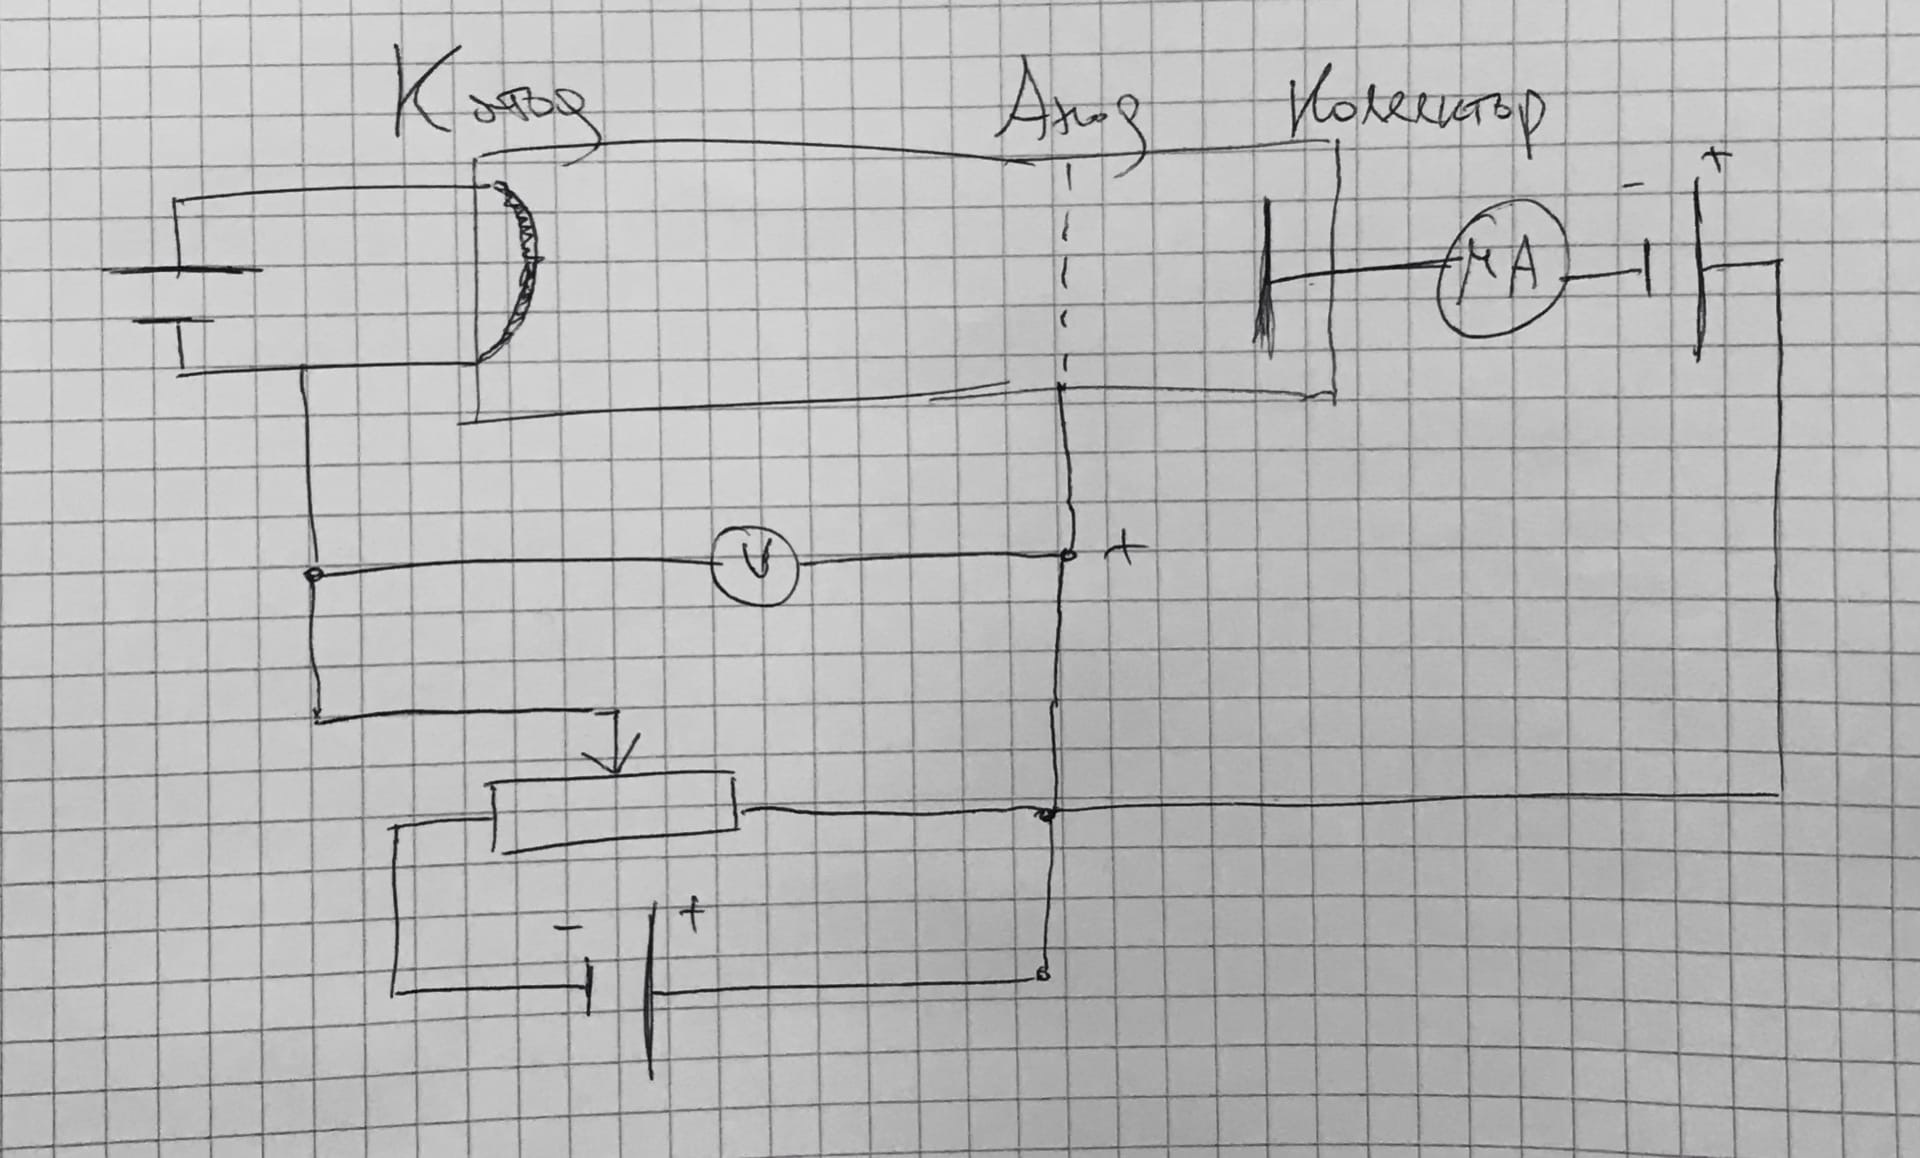 Катод Анод Колектор
- +
μA
V +
- +